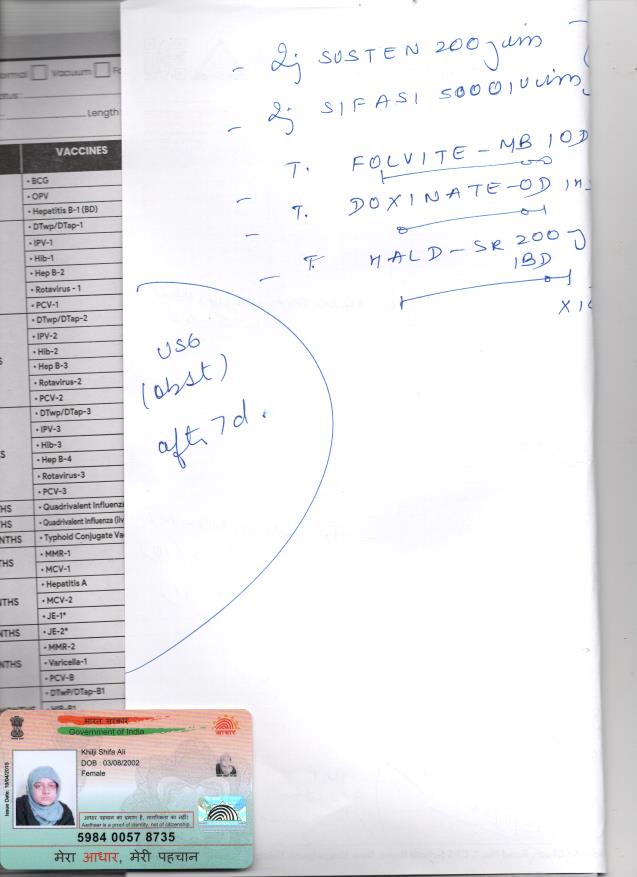 - Inj SUSTEN 200 g i/m
- Inj SIFASI 5000 IU i/m
T. FOLVITE - MB 1OD
- T. DOXINATE - OD
- T. MALD - SR 200 g
1BD
USG
(obst)
after 7 d.
Vacuum
Length
VACCINES
• BCG
• OPV
• Hepatitis B-1 (BD)
• DTwp/DTap-1
• IPV-1
• Hib-1
• Hep B-2
• Rotavirus - 1
• PCV-1
• DTwp/DTap-2
• IPV-2
• Hib-2
• Hep B-3
• Rotavirus-2
• PCV-2
• DTwp/DTap-3
• IPV-3
• Hib-3
• Hep B-4
• Rotavirus-3
• PCV-3
HS • Quadrivalent Influenz
HS • Quadrivalent Influenza (IIV
NTHS • Typhoid Conjugate Va
• MMR-1
THS • MCV-1
• Hepatitis A
THS • MCV-2
• JE-1*
THS • JE-2*
• MMR-2
NTHS • Varicella-1
• PCV-B
• DTwP/DTap-B1
भारत सरकार
Government of India
आधार
Khilji Shifa Ali
DOB : 03/08/2002
Female
आधार पहचान का प्रमाण है, नागरिकता का नहीं।
Aadhaar is a proof of identity, not of citizenship.
5984 0057 8735
मेरा आधार, मेरी पहचान